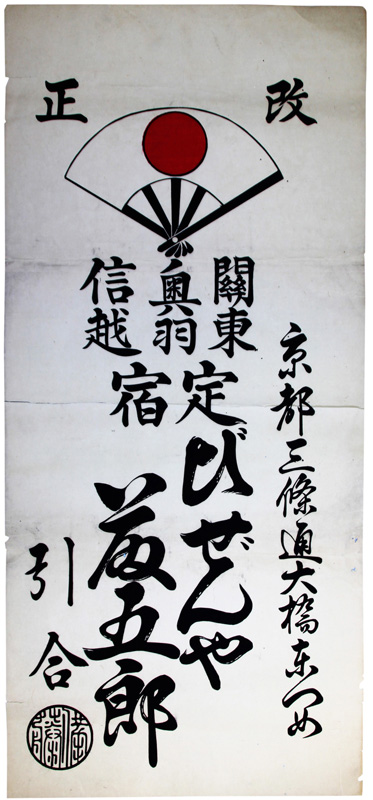 改正
關東
奥羽
信越
定宿
京都三條通大橋東つめ
びぜんや
藤五郎
引合